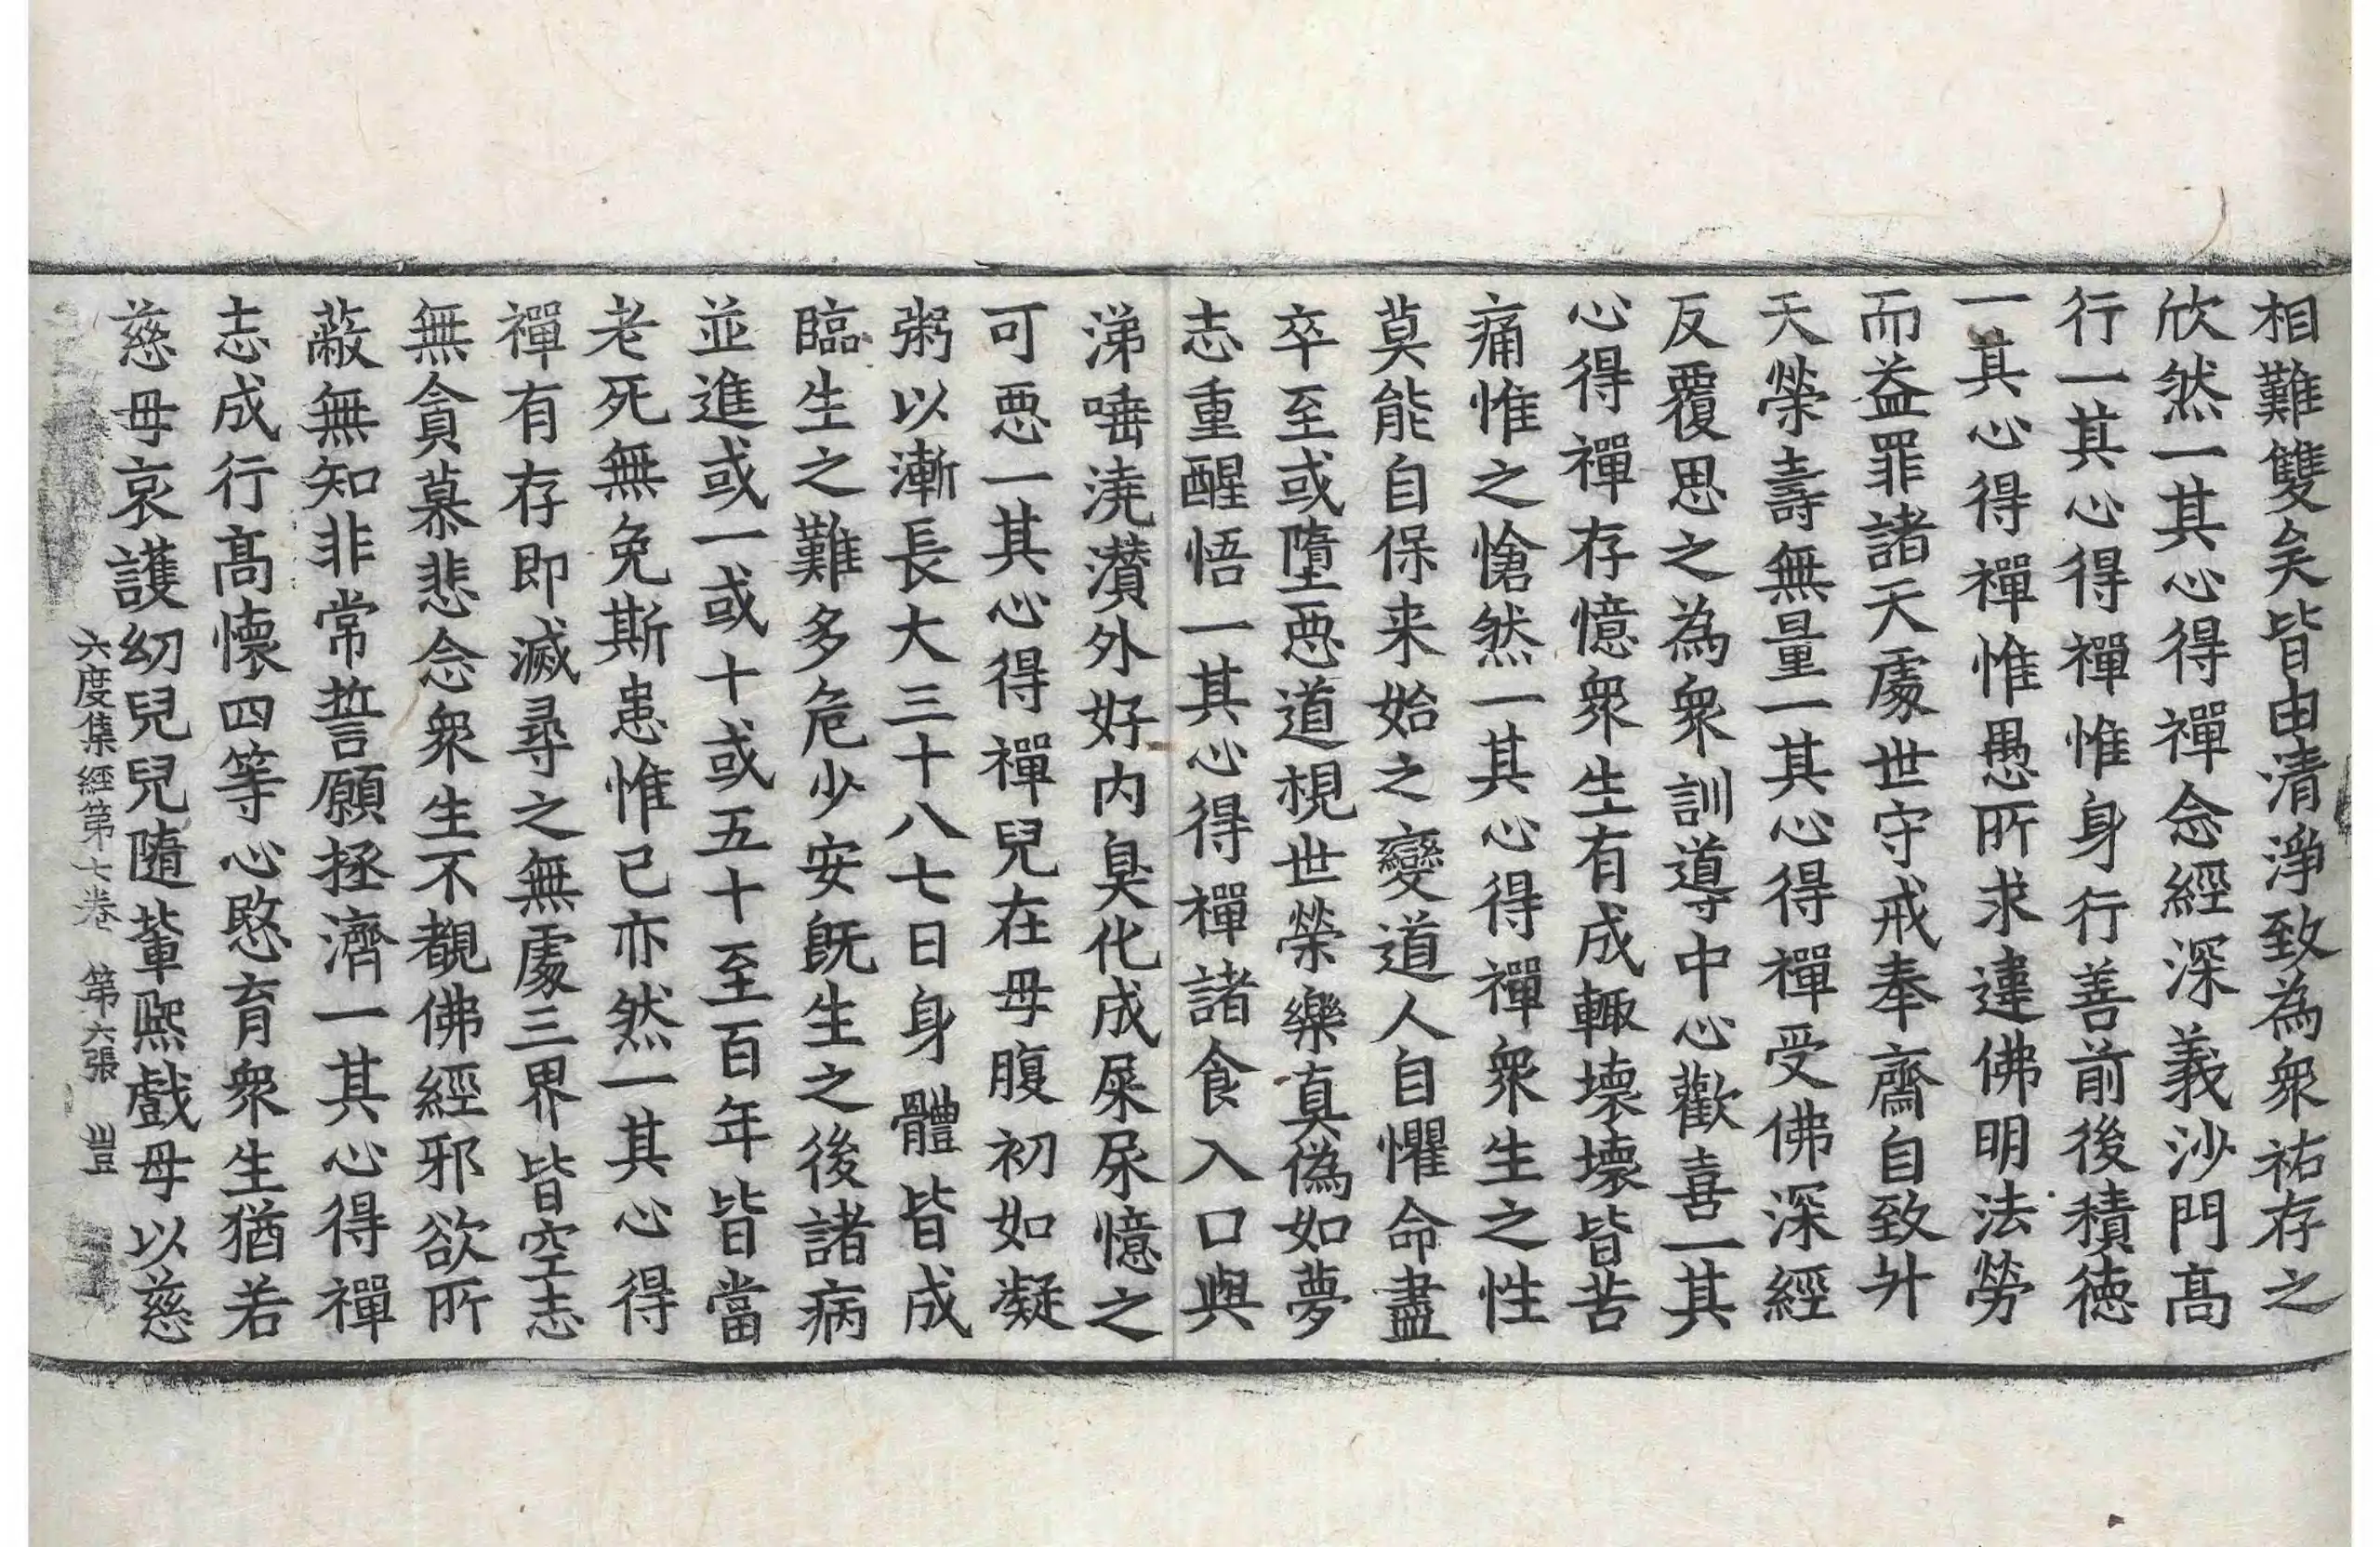 相難雙矣皆由清淨致為衆祐存之
欣然一其心得禪念經深義沙門高
行一其心得禪惟身行善前後積德
一其心得禪惟愚所求違佛明法勞
而益罪諸天處世守戒奉齋自致升
天榮壽無量一其心得禪受佛深經
反覆思之為衆訓導中心歡喜一其
心得禪存憶衆生有成輙壞壞皆苦
痛惟之愴然一其心得禪衆生之性
莫能自保来始之變道人自懼命盡
卒至或墮惡道梘世榮樂真偽如夢
志重醒悟一其心得禪諸食入口與
涕唾澆灒外好内臭化成屎尿憶之
可惡一其心得禪兒在母腹初如凝
粥以漸長大三十八七日身體皆成
臨生之難多危少安旣生之後諸病
並進或一或十或五十至百年皆當
老死無免斯患惟已亦然一其心得
禪有存即滅尋之無處三界皆空志
無貪慕悲念衆生不覩佛經邪欲所
蔽無知非常誓願拯濟一其心得禪
志成行高懷四等心愍育衆生猶若
慈母哀護幼兒兒隨輩熈戲母以慈
六度集經第七卷　第六張　豈